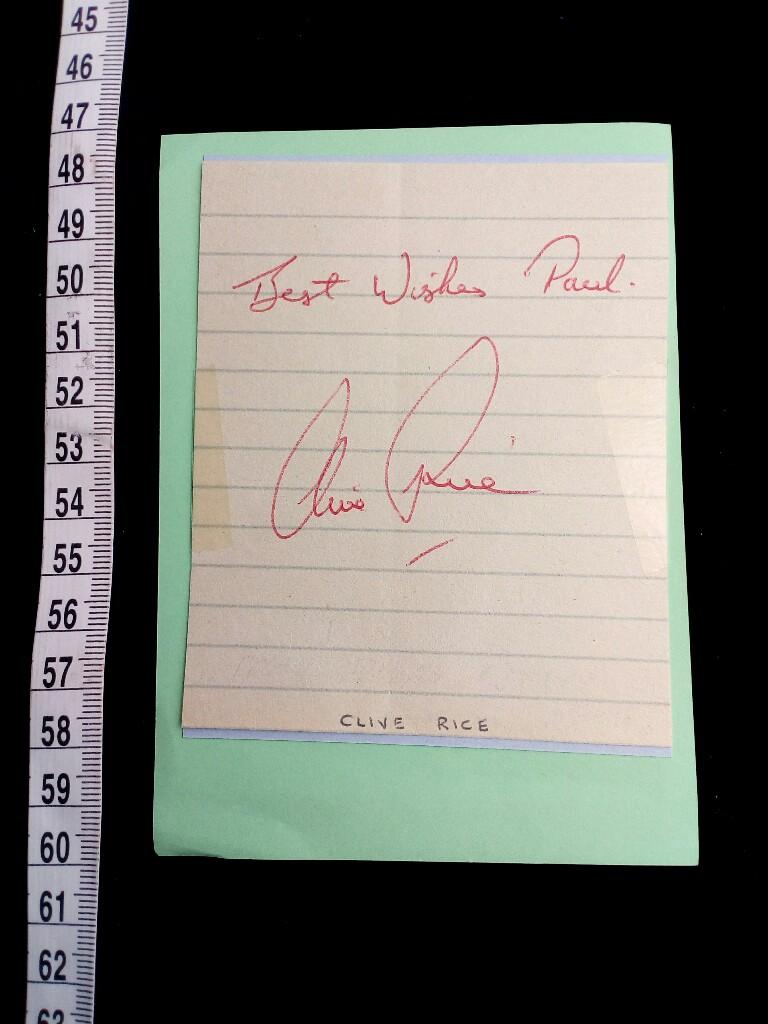 45
46
47
48
49
50
51
52
53
54
55
56
57
58
59
60
61
62
63
Best Wishes Paul.
Clive Rice
CLIVE RICE